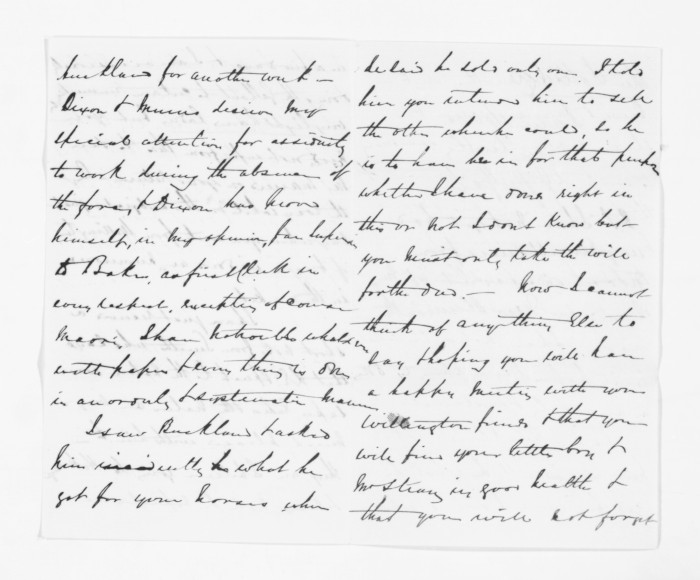 Auckland for another week —
Dixon & Munro deserve my
special attention for assiduity
to work during the absence of
the foray, & Dixon has proved
himself, in my opinion, far superior
to Baker, as first Clerk in
every respect, excepting of course
Maori. I have no trouble whatever
with papers & every thing is done
in an orderly & systematic manner
I saw Buckland & asked
him what he
got for your horses when
he said he sold only one. I told
him you intended him to sell
the other when he could, so he
is to have in for that purpose
whether I have done right in
this or not I dont know but
you must only take the will
for the deed. — Now I cannot
think of anything Else to
say & hoping you will have
a happy meeting with your
Wellington friends & that you
will find your little boy &
Mrs Strang in good health &
that you will not forget